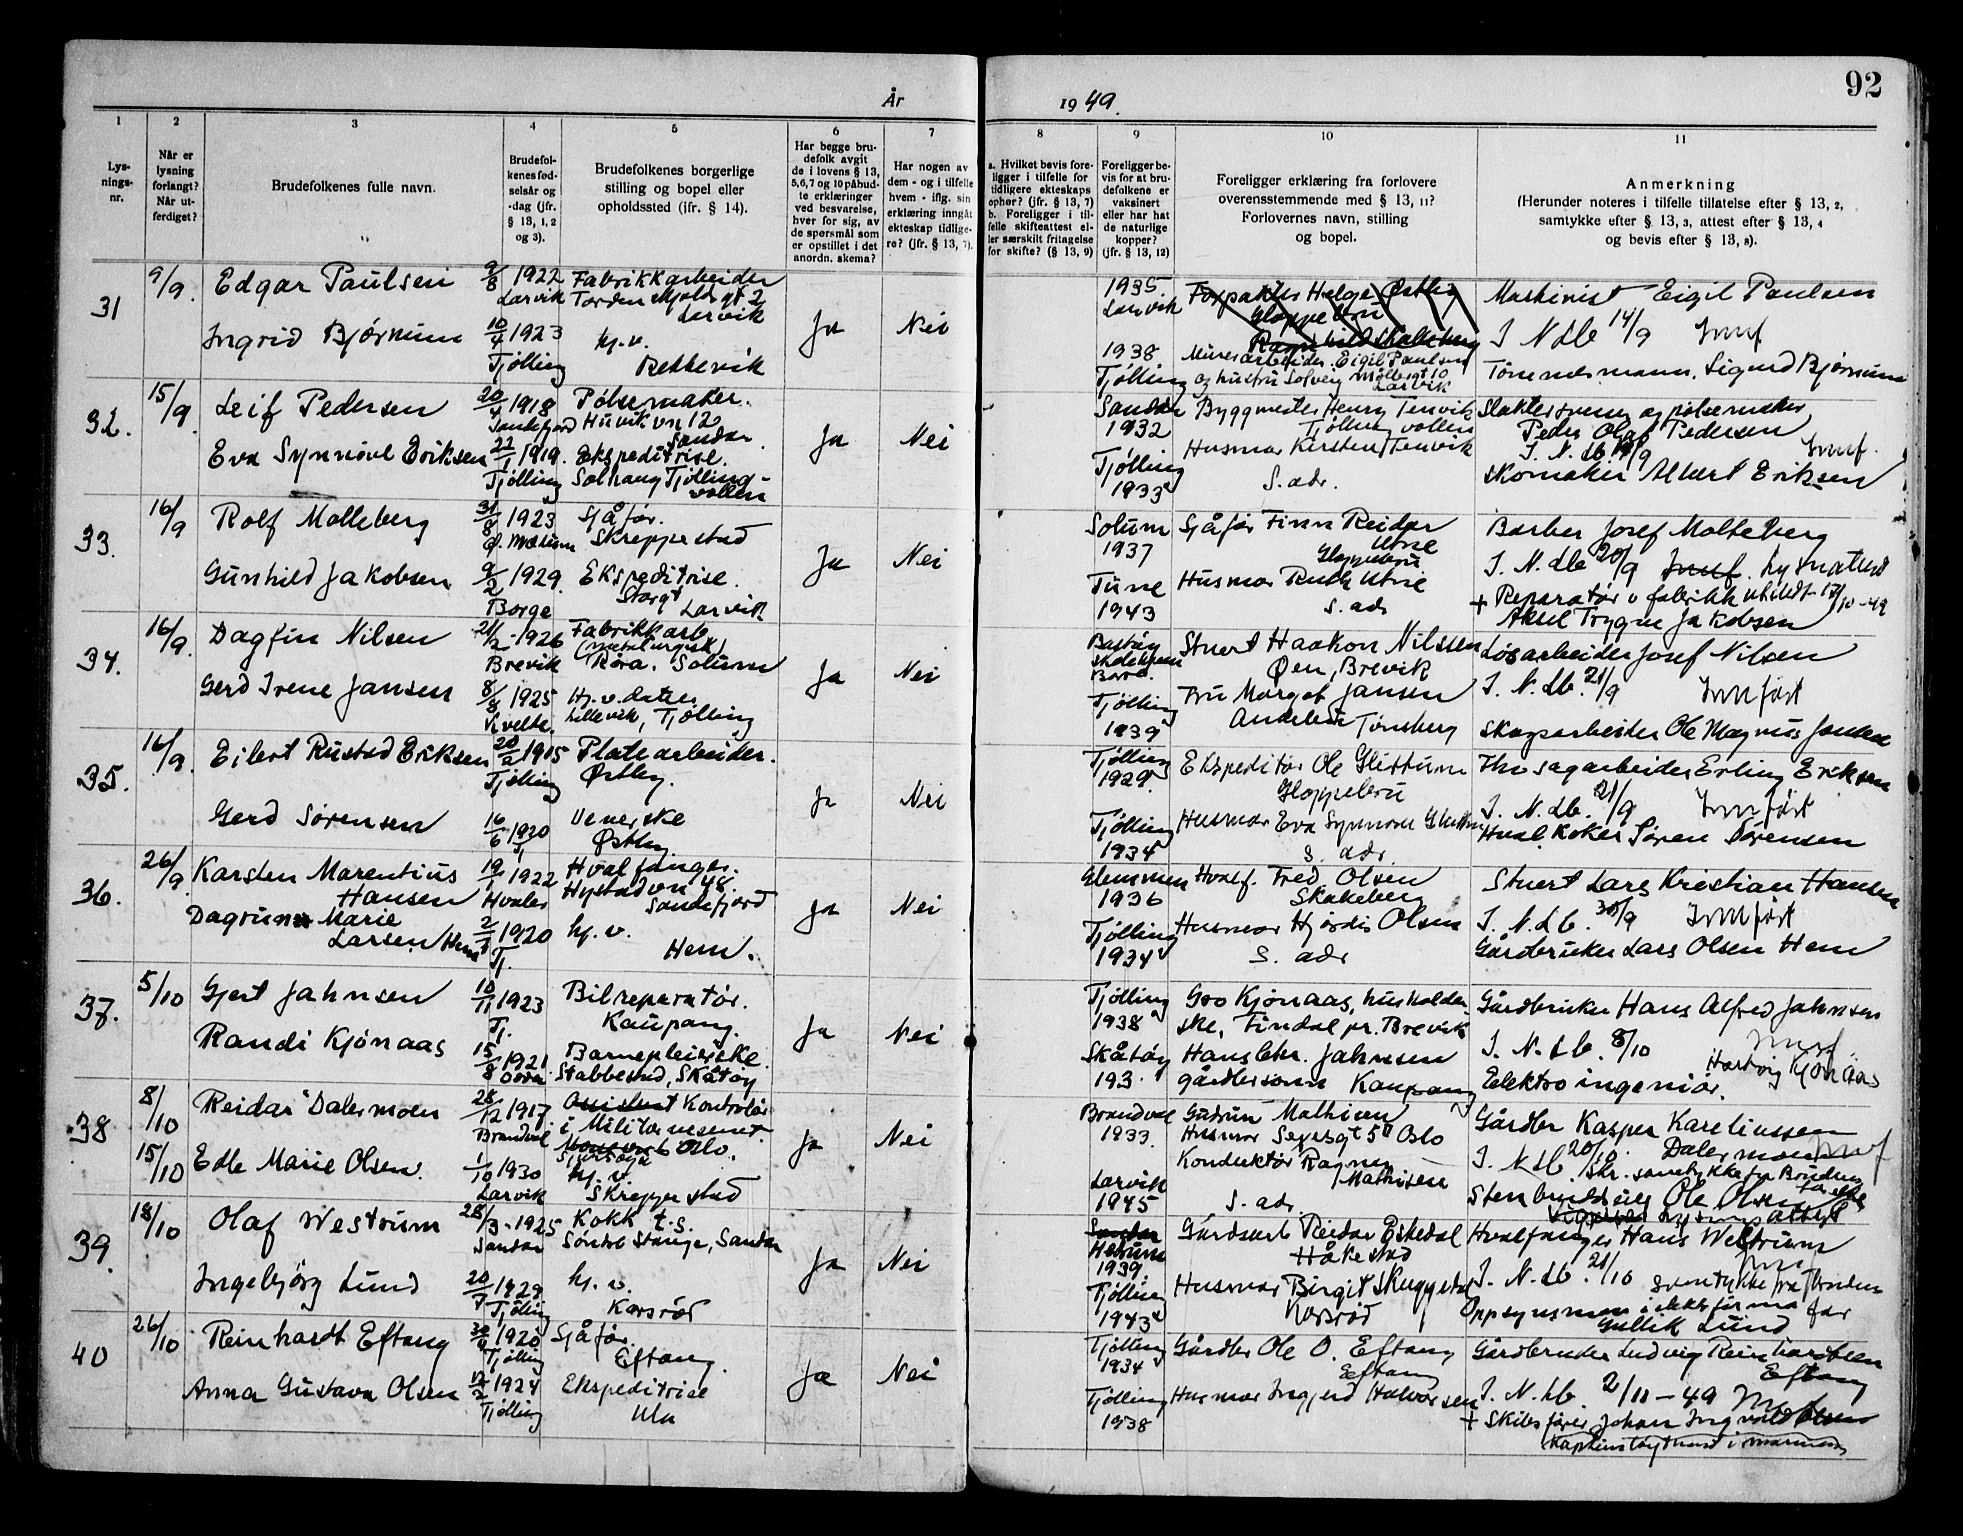 92
År 1949.
1
2
3
4
5
6
7
8
9
10
11
Lys-
nings-
nr.
Når er
lysning
forlangt?
Når ut-
ferdiget?
Brudefolkenes fulle navn.
Brudefol-
kenes fød-
selsår og
-dag (jfr.
§ 13, 1, 2
og 3).
Brudefolkenes borgerlige
stilling og bopel eller
opholdssted (jfr. § 14).
Har begge bru-
defolk avgit
de i lovens § 13,
5,6,7 og 10 påbud-
te erklæringer
ved besvarelse,
hver for sig, av
de spørsmål som
er opstillet i det
anordn. skema?
Har nogen av
dem - og i tilfelle
hvem - iflg. sin
erklæring inngått
ekteskap tidlige-
re? (jfr. § 13, 7).
a. Hvilket bevis fore-
ligger i tilfelle for
tidligere ekteskaps
ophør? (jfr. § 13, 7)
b. Foreligger i til-
felle skifteattest el-
ler særskilt fritagelse
for skifte? (§ 13, 9)
Foreligger be-
vis for at bru-
defolkene er
vaksinert
eller har hat
de naturlige
kopper?
(jfr. § 13, 12)
Foreligger erklæring fra forlovere
overensstemmende med § 13, 11?
Forlovernes navn, stilling
og bopel.
Anmerkning
(Herunder noteres i tilfelle tillatelse efter § 13, 2,
samtykke efter § 13, 3, attest efter § 13, 4
og bevis efter § 13, 8).
31
9/9.
Edgar Paulsen
9/8 1922
Larvik
Fabrikkarbeider
Tordenskjolds gt 2
Larvik
Ingrid Bjørnum
10/4 1923
Tjølling
hj.v.
Rekkevik
Ja
Nei
1935
Larvik
Helge Østby
Gloppebru
1938
Tjølling
Murerarbeider Eigil Paulsen
og hustru Solveig Møllergt 10
Larvik
Maskinist Eigil Paulsen
I. N. Lb 14/9 Innf
Tønnesmann. Sigurd Bjørnum
32.
15/9
Leif Pedersen
20/4 1918
Sandefjord
Pølsemaker.
Huvik vn 12
Sandar
Eva Synnøve Eriksen
22/1 1919.
Tjølling
Ekspeditrise.
Solhaug Tjølling-
vollen
Ja
Nei
Sandar
1932
Byggmester Henry Tenvik
Tjølling vollen
Tjølling
1933
Husmor Kirsten Tenvik
S. adr.
Slaktersvenn og pølsemaker
Peder Olaf Pedersen
I. N. Lb. 19/9 Innf.
Skomaker Albert Eriksen
33.
16/9
Rolf Molteberg
31/8 1923
Sjåfør.
Skreppestad
Gunhild Jakobsen
9/2 1929.
Borge
Ekspeditrise.
Storgt Larvik
Ja
Nei
Solum
1937
Sjåfør Finn Reidar
Utne
Gloppebru
Tune
1943
Husmor Ruth Utne
S. adr
Barber Josef Molteberg
I. N. Lb 20/9 Innf.
+ Reparatør v fabrikk
Aksel Trygve Jakobsen
34.
16/9
Dagfin Nilsen
21/2 - 1926
Brevik
Fabrikkarb
(metallurgisk)
Røra. Solum
Gerd Irene Jansen
8/8 1925
Kvelde.
Hj. v. datter
Lillevik, Tjølling
Ja
Nei
Stuert Haakon Nilssen
Øen, Brevik
Tjølling
1939
Fru Margot Jansen
Andebu Tønsberg
Løsarbeider Josef Nilsen
I. N. Lb. 21/9 Innført
Skogsarbeider Ole Magnus Jansen
35.
16/9
Eilert Rustad Eriksen
20/2 1915
Tjølling
Platearbeider.
Østby.
Gerd Sørensen
16/6 1920
Tj
Veverske
Østby.
Ja
Nei
Tjølling
1929
Ekspeditør Ole Glittum
Gloppebru
Tjølling
1934
Husmor Eva Synnøve Glittum
S. adr.
Fhv sagarbeider Erling Eriksen
I. N. Lb. 21/9 Innført
Hval. koker Søren Sørensen
36.
26/9
Karsten Marentius
Hansen
19/1 1922
Hvaler
Hvalfanger.
Hystadvn 48.
Sandefjord
Dagrun Marie
Larsen Hem
2/3 1920
Tj.
hj. v.
Hem.
Ja
Nei
Glemmen
1936
Hvalf. Fred Olsen
Skakeberg
Tjølling
1934
Husmor Hjørdis Olsen
S. adr
Stuert Lars Kristian Hansen
I. N. Lb. 30/9 Innført
Gårdbruker Lars Olsen Hem
37.
5/10
Gjert Jahnsen
10/11 1923
Tj.
Bilreparatør.
Kaupang.
Randi Kjønaas
15/8 1921
Barnepleierske.
Stabbestad, Skåtøy
Ja
Nei
Tjølling
1938
Gro Kjønaas, husholder-
ske, Findal pr. Brevik
Skåtøy
193
Hans Chr. Jahnsen
gårdbr.sønn Kaupang
Gårdbruker Hans Alfred Jahnsen
I. N. Lb. 8/10 Innf.
Hartvig Kjønaas
Elektroingeniør.
38
8/10
15/10
Reidar Dalermoen
28/12 1917.
Brandval
Assistent Kontrolør
i Militærvesenet.
Oslo.
Edle Marie Olsen.
1/10 1930
Larvik
hj. v.
Skreppestad
Ja
Nei
Brandval
1933.
Gudrun Mathisen
Husmor Segesgt 5 Oslo
Larvik
1945
Konduktør Ragnar
Mathisen
S. adr
Gårdbr Kasper Kareliussen
Dalermoen
I. N. Lb 20/10. Innf
Skr. samtykke fra Brudens
foreldre
Stenhugger Ole Olsen
39.
18/10
Olaf Westrum
28/3 - 1925
Sandar
Kokk t.s.
Søndre Stange, Sandar
Ingebjørg Lund
20/7 1929
Tjølling
hj. v.
Kaysrød
Ja
Nei
Sandar
Hedrum
1939
Gårdsarb Reidar Eskedal
Håkestad
Tjølling
1943
Husmor Birgit Skuggedal
Kaysrød
Hvalfanger Hans Westrum
I. N. Lb. 21/10 samtykke fra Brudens far
Oppsynsmann i
Gullik Lund
40
26/10
Reinhardt Eftang
1920
Tjølling
Sjåfør.
Eftang.
Anna Gustava Olsen
12/2 1924
Tjølling
Ekspeditrise
Ula
Ja
Nei
Tjølling
1934
Gårdbr Ole O. Eftang
Eftang
Tjølling
1938
Husmor Ingjerd Halvorsen
Gårdbruker Ludvig Reinhardtsen
Eftang
I. N. Lb. 2/11 - 49 Innf
+ Skibsfører Johan Ingvald Olsen